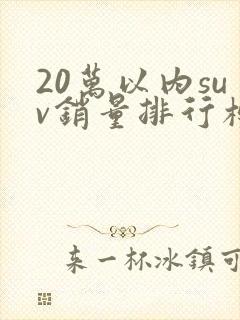 20萬以内su
v銷量排行榜
来一杯冰鎮可